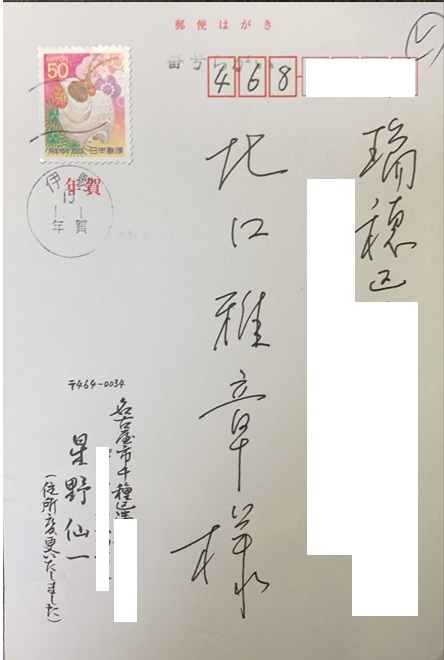 郵便はがき
NIPPON
50
日本郵便
468
年賀
瑞穂区
北口雅章様
〒464-0034
名古屋市千種区
星野仙一
(住所変更いたしました)